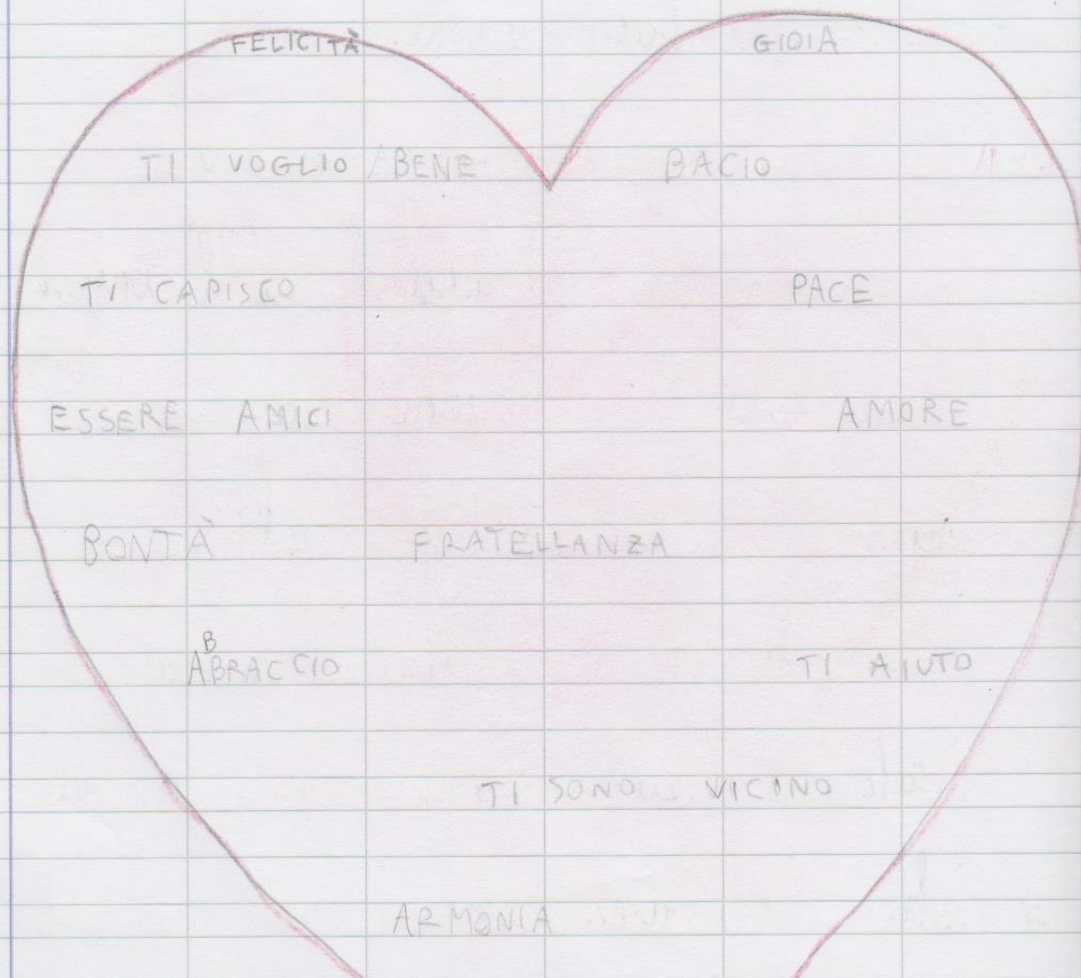 FELICITÀ GIOIA
TI VOGLIO BENE BACIO
TI CAPISCO PACE
ESSERE AMICI AMORE
BONTÀ FRATELLANZA
ABBRACCIO TI AIUTO
TI SONO VICINO
ARMONIA